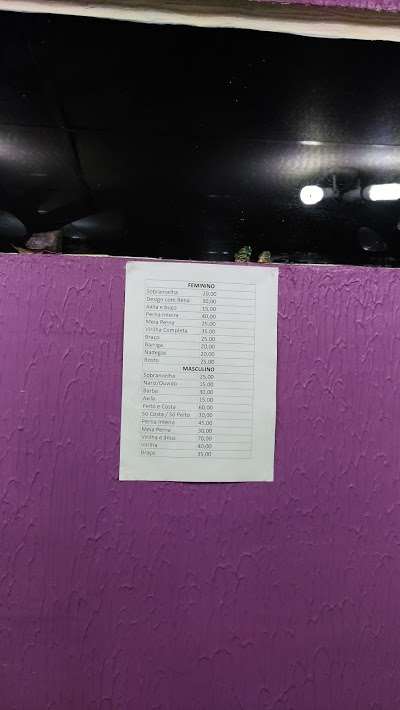 FEMININO
Sobrancelha 20,00
Design com Rena 30,00
Axila e buço 15,00
Perna Inteira 40,00
Meia Perna 25,00
Virilha Completa 35,00
Braço 25,00
Barriga 20,00
Nadegas 20,00
Rosto 25,00
MASCULINO
Sobrancelha 25,00
Nariz/Ouvido 15,00
Barba 30,00
Axila 15,00
Peito e Costa 60,00
Só Costa / Só Peito 30,00
Perna Inteira 45,00
Meia Perna 30,00
Virilha e 70,00
Virilha 40,00
Braço 35,00